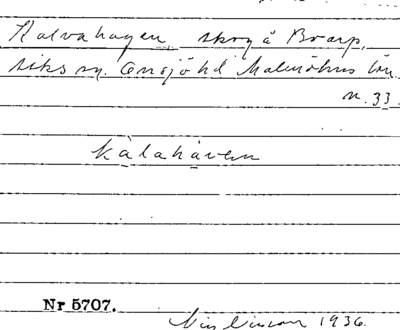 Kalvahagen, skog å Boarp,
Riks sn. Onsjö hd Malmöhus län
n. 33
kalahaven
Nr 5707.
1936.